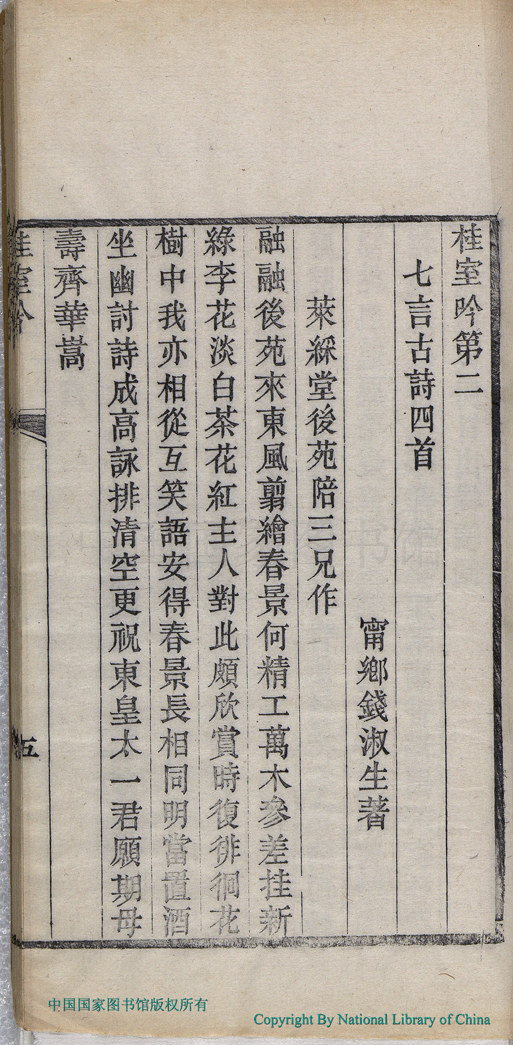 桂室吟第二
七言古詩四首
甯鄉錢淑生著
萊綵堂後苑陪三兄作
融融後苑來東風翦繪春景何精工萬木參差挂新
綠李花淡白茶花紅主人對此頗欣賞時復徘徊花
樹中我亦相從互笑語安得春景長相同明當置酒
坐幽討詩成高詠排清空更祝東皇太一君願期母
壽齊華嵩
桂室吟
五
中国国家图书馆版权所有
Copyright By National Library of China